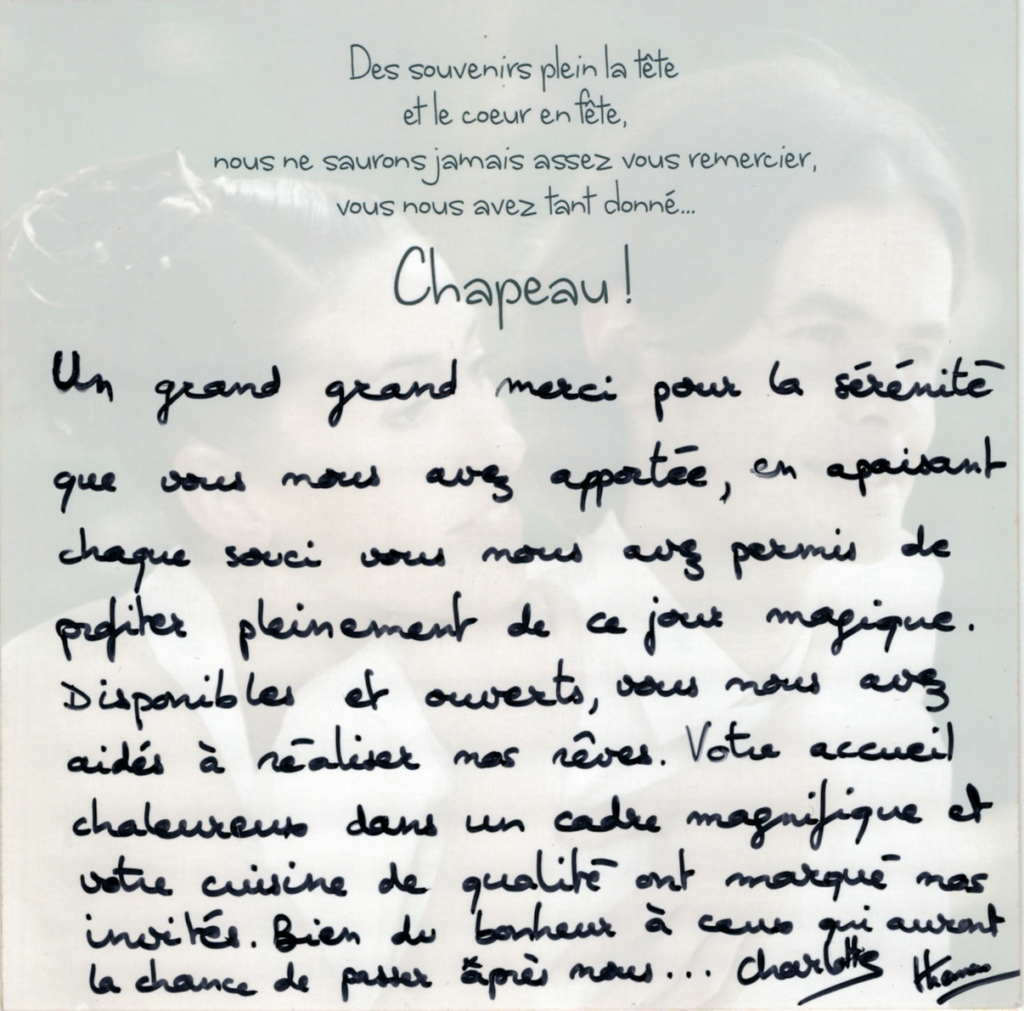 Des souvenirs plein la tête
et le coeur en fête,
nous ne saurons jamais assez vous remercier,
vous nous avez tant donné...
Chapeau !
Un grand grand merci pour la sérénité
que vous nous avez apportée, en apaisant
chaque souci vous nous avez permis de
profiter pleinement de ce jour magique.
Disponibles et ouverts, vous nous avez
aidés à réaliser nos rêves. Votre accueil
chaleureux dans un cadre magnifique et
votre cuisine de qualité ont marqué nos
invités. Bien du bonheur à ceux qui auront
la chance de passer après nous... Charlotte